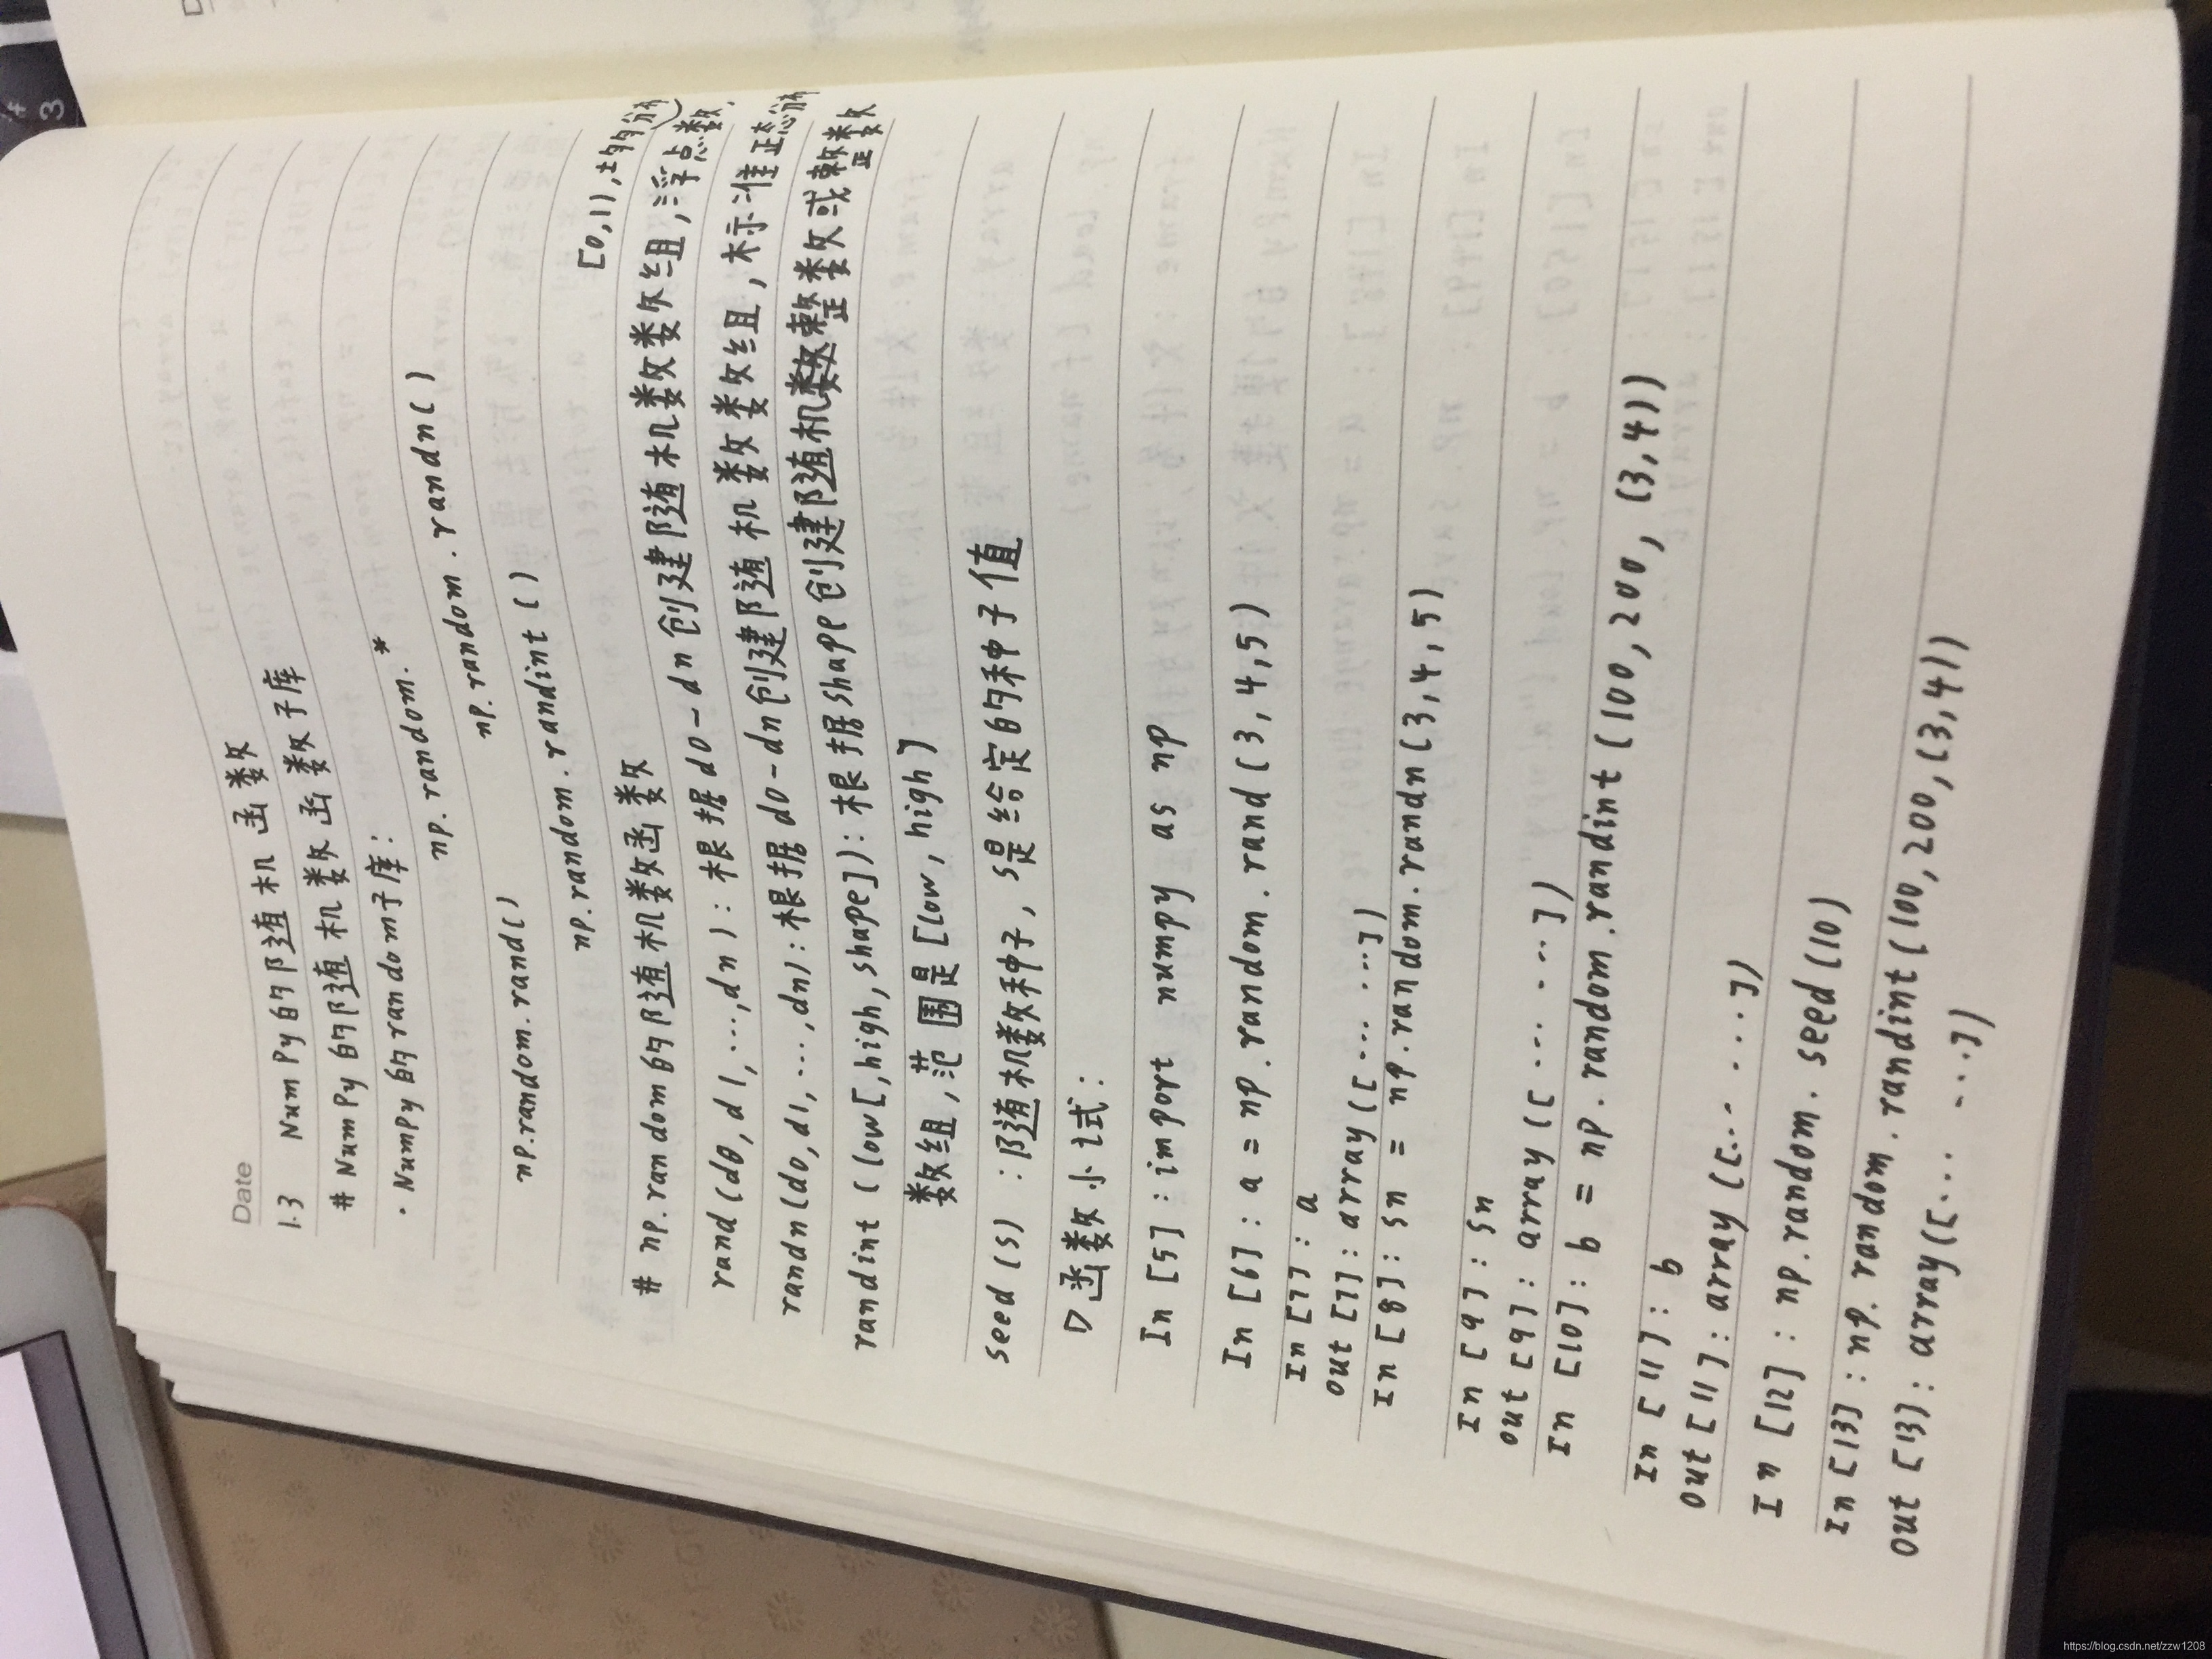 Date
1.3 NumPy的随机函数
# NumPy的随机数函数子库
· NumPy的random子库:
np.random.*
np.random.randn()
np.random.rand()
np.random.randint()
# np.random的随机数函数
[0,1),均匀分布
rand(d0,d1,…,dn):根据d0-dn创建随机数数组,浮点数,
randn(d0,d1,…,dn):根据d0-dn创建随机数数组,标准正态分布
randint(low[,high,shape]):根据shape创建随机整数或整数
数组,范围是[low,high]
seed(s):随机数种子,s是给定的种子值
▷函数小试:
In [5]: import numpy as np
In [6]: a = np.random.rand(3,4,5)
In [7]: a
out [7]: array([… …])
In [8]: sn = np.random.randn(3,4,5)
In [9]: sn
out [9]: array([… …])
In [10]: b = np.random.randint(100,200,(3,4))
In [11]: b
out [11]: array([… …])
In [12]: np.random.seed(10)
In [13]: np.random.randint(100,200,(3,4))
out [13]: array([… …])
3
https://blog.csdn.net/zzw1208